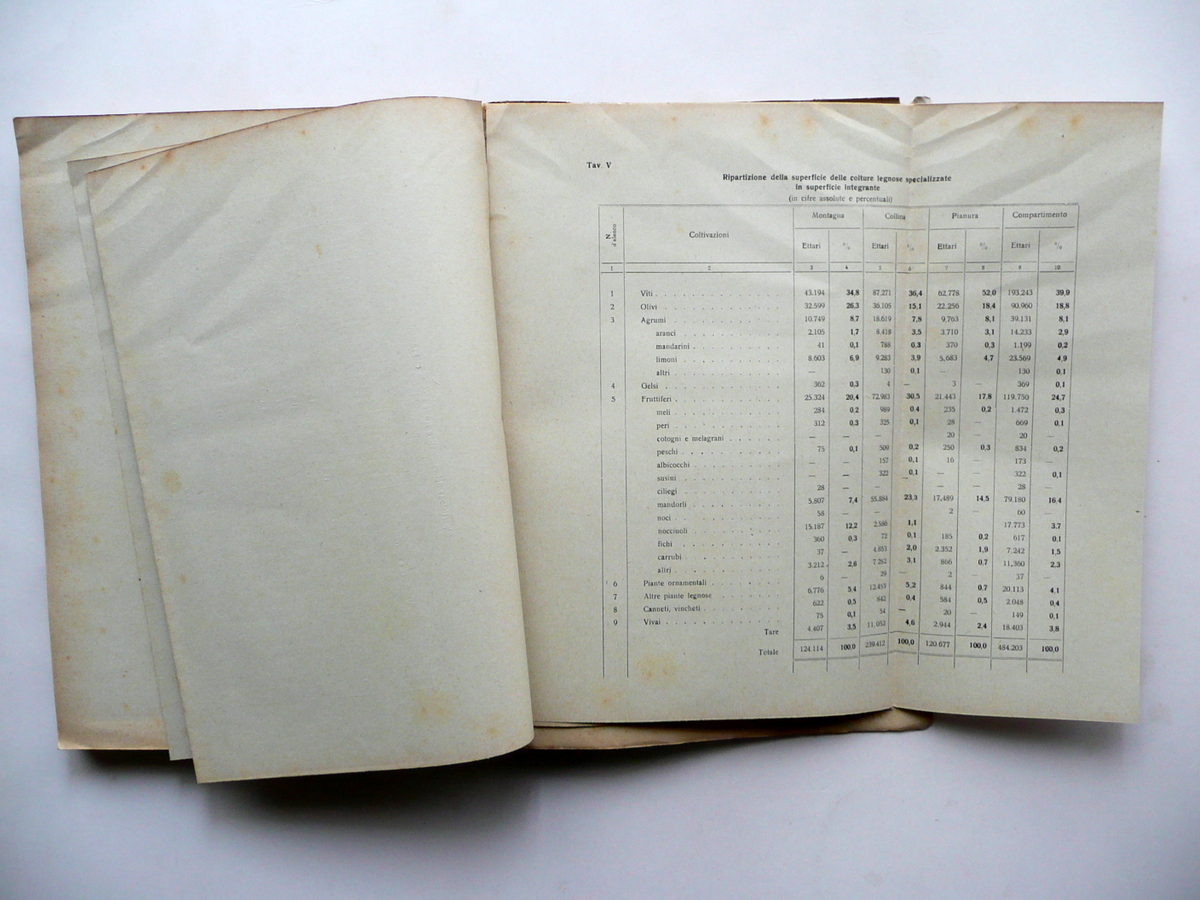 Tav. V
Ripartizione della superficie delle colture legnose specializzate
in superficie integrante
(in cifre assolute e percentuali)
N. d'ordine Coltivazioni Montagna Collina Pianura Compartimento
Ettari % Ettari % Ettari % Ettari %
1 2 3 4 5 6 7 8 9 10
1 Viti 43.194 34,8 87.271 36,4 62.778 52,0 193.243 39,9
2 Olivi 32.599 26,3 36.105 15,1 22.256 18,4 90.960 18,8
3 Agrumi 10.749 8,7 18.619 7,8 9.763 8,1 39.131 8,1
aranci 2.105 1,7 8.418 3,5 3.710 3,1 14.233 2,9
mandarini 41 0,1 788 0,3 370 0,3 1.199 0,2
limoni 8.603 6,9 9.283 3,9 5.683 4,7 23.569 4,9
altri — 130 0,1 — 130 0,1
4 Gelsi 362 0,3 4 — 3 — 369 0,1
5 Fruttiferi 25.324 20,4 72.983 30,5 21.443 17,8 119.750 24,7
meli 284 0,2 989 0,4 235 0,2 1.472 0,3
peri 312 0,3 325 0,1 28 — 669 0,1
cotogni e melagrani — — — — 20 — 20 —
peschi 75 0,1 509 0,2 250 0,3 834 0,2
albicocchi — — 157 0,1 16 — 173 —
susini — — 322 0,1 — — 322 0,1
ciliegi 28 — — — — 28 —
mandorli 5.807 7,4 55.884 23,3 17.489 14,5 79.180 16,4
noci 58 — 2 60
noccinoli 15.187 12,2 2.586 1,1 17.773 3,7
fichi 360 0,3 72 0,1 185 0,2 617 0,1
carrubi 37 — 4.853 2,0 2.352 1,9 7.242 1,5
altri 3.212 2,6 7.282 3,1 866 0,7 11.360 2,3
6 Piante ornamentali 6 — 29 — 2 — 37 —
7 Altre piante legnose 6.776 5,4 12.493 5,2 844 0,7 20.113 4,1
8 Canneti, vincheti 622 0,5 842 0,4 584 0,5 2.048 0,4
9 Vivai 75 0,1 54 — 20 — 149 0,1
Tare 4.407 3,5 11.052 4,6 2.944 2,4 18.403 3,8
Totale 124.114 100,0 239.412 100,0 120.677 100,0 484.203 100,0